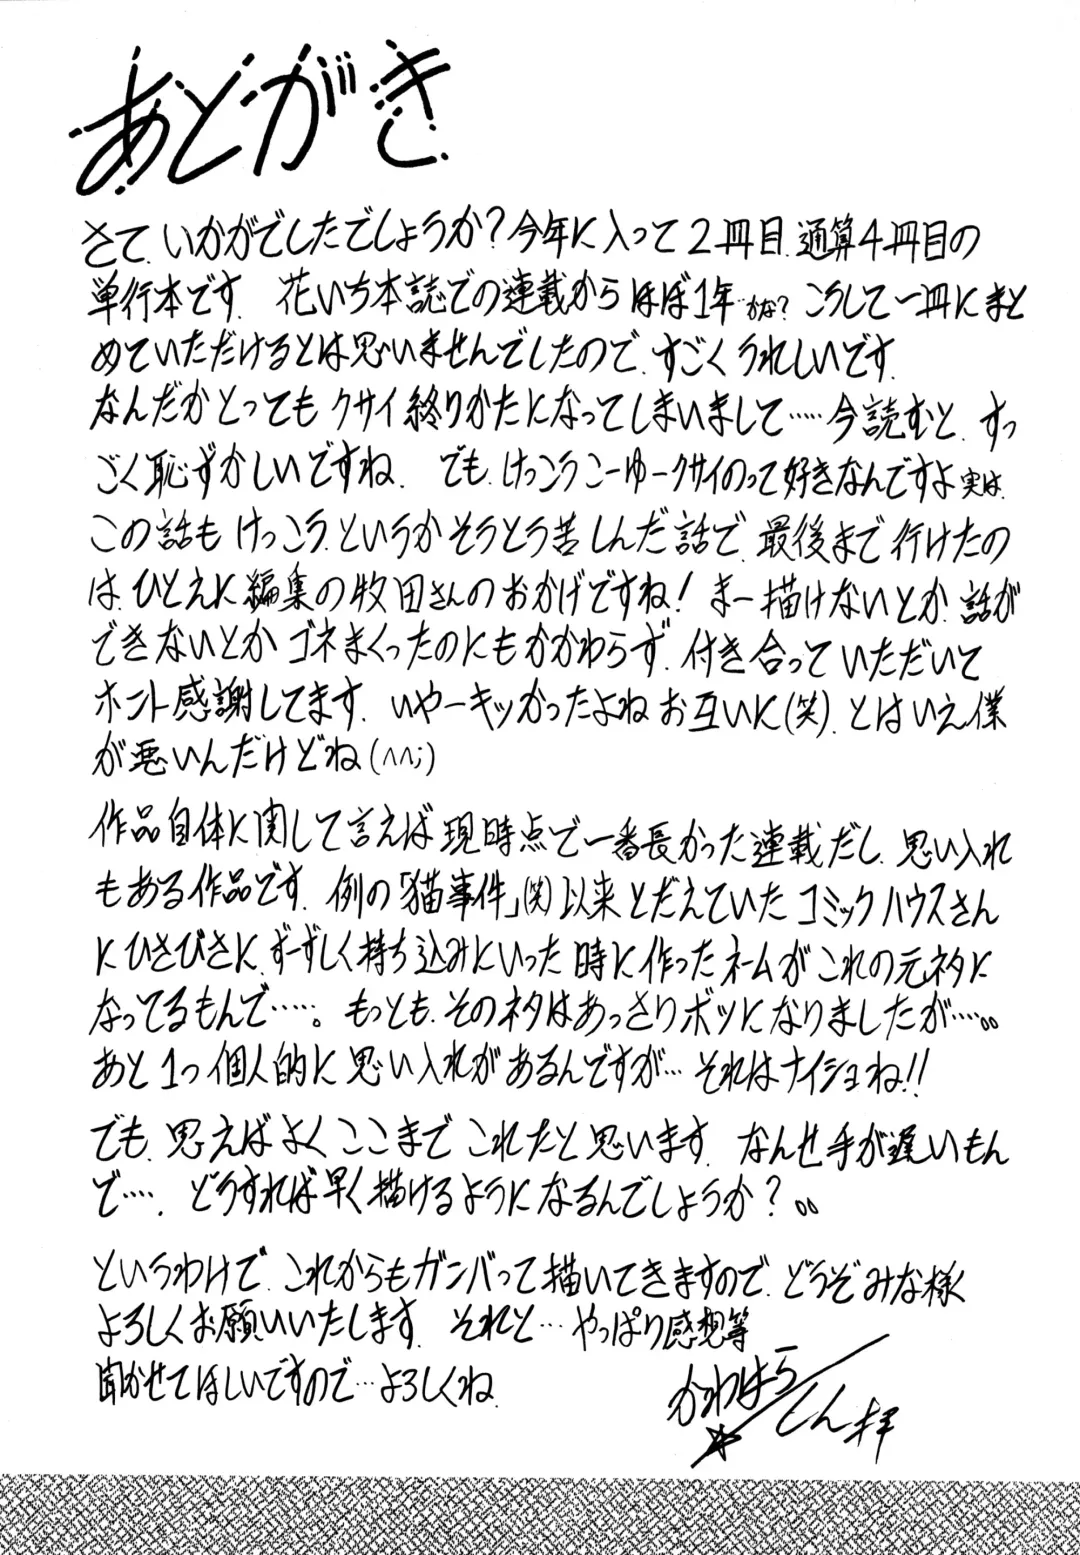 あとがき
さて、いかがでしたでしょうか?今年に入って2冊目、通算4冊目の
単行本です。花いち本誌での連載からほぼ1年…かな?こうして一冊にまと
めていただけるとは思いませんでしたので、すごくうれしいです。
なんだかとってもクサイ終りかたになってしまいまして……今読むと、すっ
ごく恥ずかしいですね。でも、けっこうこーゆークサイのって好きなんですよ実は。
この話もけっこう、というかそうとう苦しんだ話で、最後まで行けたの
は、ひとえに編集の牧田さんのおかげですね!まー描けないとか、話が
できないとかゴネまくったのにもかかわらず、付き合っていただいて
ホント感謝してます。いやーキツかったよねお互いに(笑)。とはいえ僕
が悪いんだけどね(^^;)
作品自体に関して言えば現時点で一番長かった連載だし、思い入れ
もある作品です。例の「猫事件」(笑)以来とだえていたコミックハウスさん
にひさびさに、ずーずしく持ち込みにいった時に作ったネームがこれの元ネタに
なってるもんで……。もっとも、そのネタはあっさりボツになりましたが……。。
あと1つ個人的に思い入れがあるんですが…それはナイショね!!
でも、思えばよくここまでこれたと思います。なんせ手が遅いもん
で…。どうすれば早く描けるようになるんでしょうか?。。
というわけで、これからもガンバって描いてきますので、どうぞみな様
よろしくお願いいたします。それと…やっぱり感想等
聞かせてほしいですので…よろしくね。
かわはら
しん拝